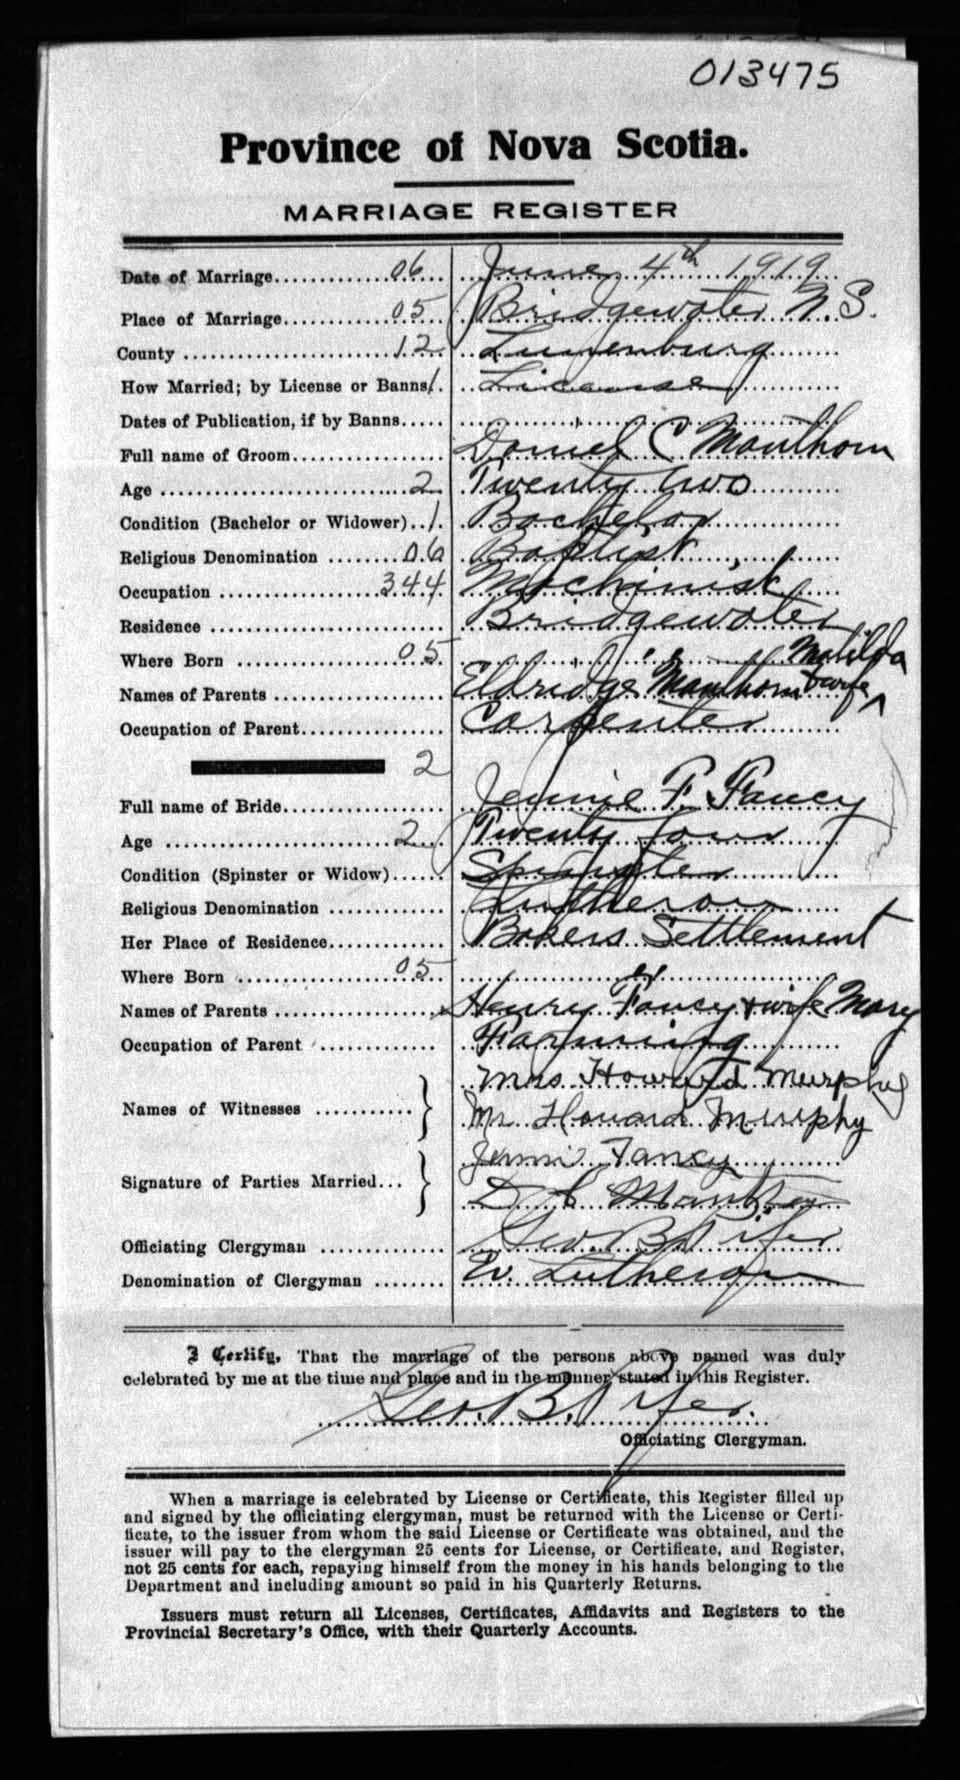 013475
Province of Nova Scotia.
MARRIAGE REGISTER
Date of Marriage............06.. June 4th 1919
Place of Marriage............05.. Bridgewater N.S.
County ............12.. Lunenburg
How Married; by License or Banns 1. License
Dates of Publication, if by Banns.....
Full name of Groom................ Daniel C Manthorn
Age ............2.. Twenty two
Condition (Bachelor or Widower)..1. Bachelor
Religious Denomination ........06 Baptist
Occupation ............344. Machinist
Residence ............ Bridgewater
Where Born ............05 " "
Matilda
Names of Parents ............ Eldridge Manthorn & wife ^
Occupation of Parent............ Carpenter
2
Full name of Bride............ Jennie F. Fancy
Age ............2.. Twenty four
Condition (Spinster or Widow)...... Spinster
Religious Denomination ............ Lutheran
Her Place of Residence............ Bakers Settlement
Where Born ............05.. " "
Names of Parents ............ Henry Fancy & wife Mary
Occupation of Parent ............ Farming
Mrs Howard Murphy
Names of Witnesses ............ }
Mr. Howard Murphy
Jennie Fancy
Signature of Parties Married... }
D C
Officiating Clergyman ............ Geo. B. Pifer
Denomination of Clergyman ........ Ev. Lutheran
I Certify, That the marriage of the persons above named was duly
celebrated by me at the time and place and in the manner stated in this Register.
Geo. B. Pifer.
Officiating Clergyman.
When a marriage is celebrated by License or Certificate, this Register filled up
and signed by the officiating clergyman, must be returned with the License or Certi-
ficate, to the issuer from whom the said License or Certificate was obtained, and the
issuer will pay to the clergyman 25 cents for License, or Certificate, and Register,
not 25 cents for each, repaying himself from the money in his hands belonging to the
Department and including amount so paid in his Quarterly Returns.
Issuers must return all Licenses, Certificates, Affidavits and Registers to the
Provincial Secretary's Office, with their Quarterly Accounts.